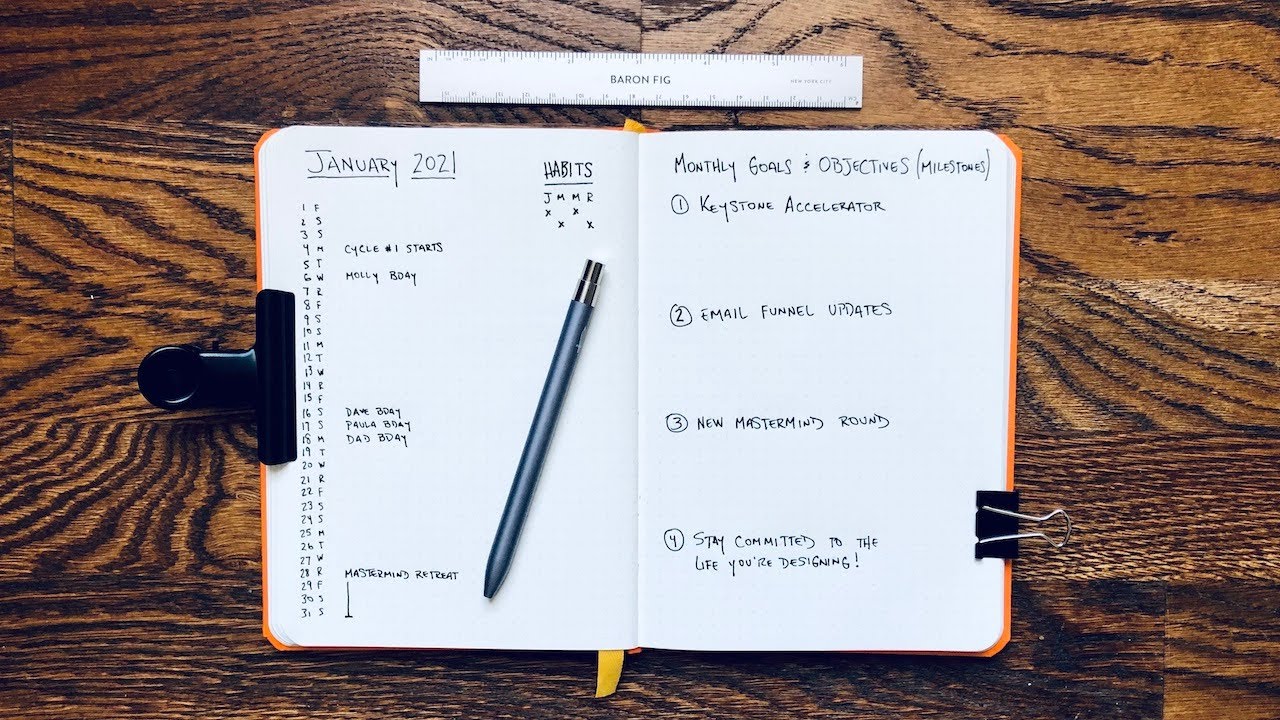 BARON FIG
NEW YORK CITY
JANUARY 2021
HABITS
J M M R
x x
x x
1 F
2 S
3 S
4 M CYCLE #1 STARTS
5 T
6 W MOLLY BDAY
7 R
8 F
9 S
10 S
11 M
12 T
13 W
14 R
15 F
16 S DAVE BDAY
17 S PAULA BDAY
18 M DAD BDAY
19 T
20 W
21 R
22 F
23 S
24 S
25 M
26 T
27 W
28 R MASTERMIND RETREAT
29 F
30 S
31 S
MONTHLY GOALS & OBJECTIVES (MILESTONES)
① KEYSTONE ACCELERATOR
② EMAIL FUNNEL UPDATES
③ NEW MASTERMIND ROUND
④ STAY COMMITTED TO THE
LIFE YOU'RE DESIGNING!